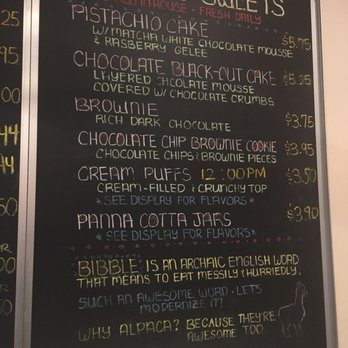 SWEETS
INHOUSE • FRESH DAILY
PISTACHIO CAKE
W/MATCHA WHITE CHOCOLATE MOUSSE $5.75
& RASBERRY GELEE
CHOCOLATE BLACK-OUT CAKE $5.25
LAYERED CHOCOLATE MOUSSE
COVERED W/ CHOCOLATE CRUMBS
BROWNIE $3.75
RICH DARK CHOCOLATE
CHOCOLATE CHIP BROWNIE COOKIE $3.95
CHOCOLATE CHIPS & BROWNIE PIECES
CREAM PUFFS 12:00PM $3.50
CREAM-FILLED & CRUNCHY TOP
*SEE DISPLAY FOR FLAVORS*
PANNA COTTA JARS $3.90
*SEE DISPLAY FOR FLAVORS*
BIBBLE: IS AN ARCHAIC ENGLISH WORD
THAT MEANS TO EAT MESSILY & HURRIEDLY.
SUCH AN AWESOME WORD. LETS
MODERNIZE IT!
WHY ALPACA? BECAUSE THEY'RE
AWESOME TOO.